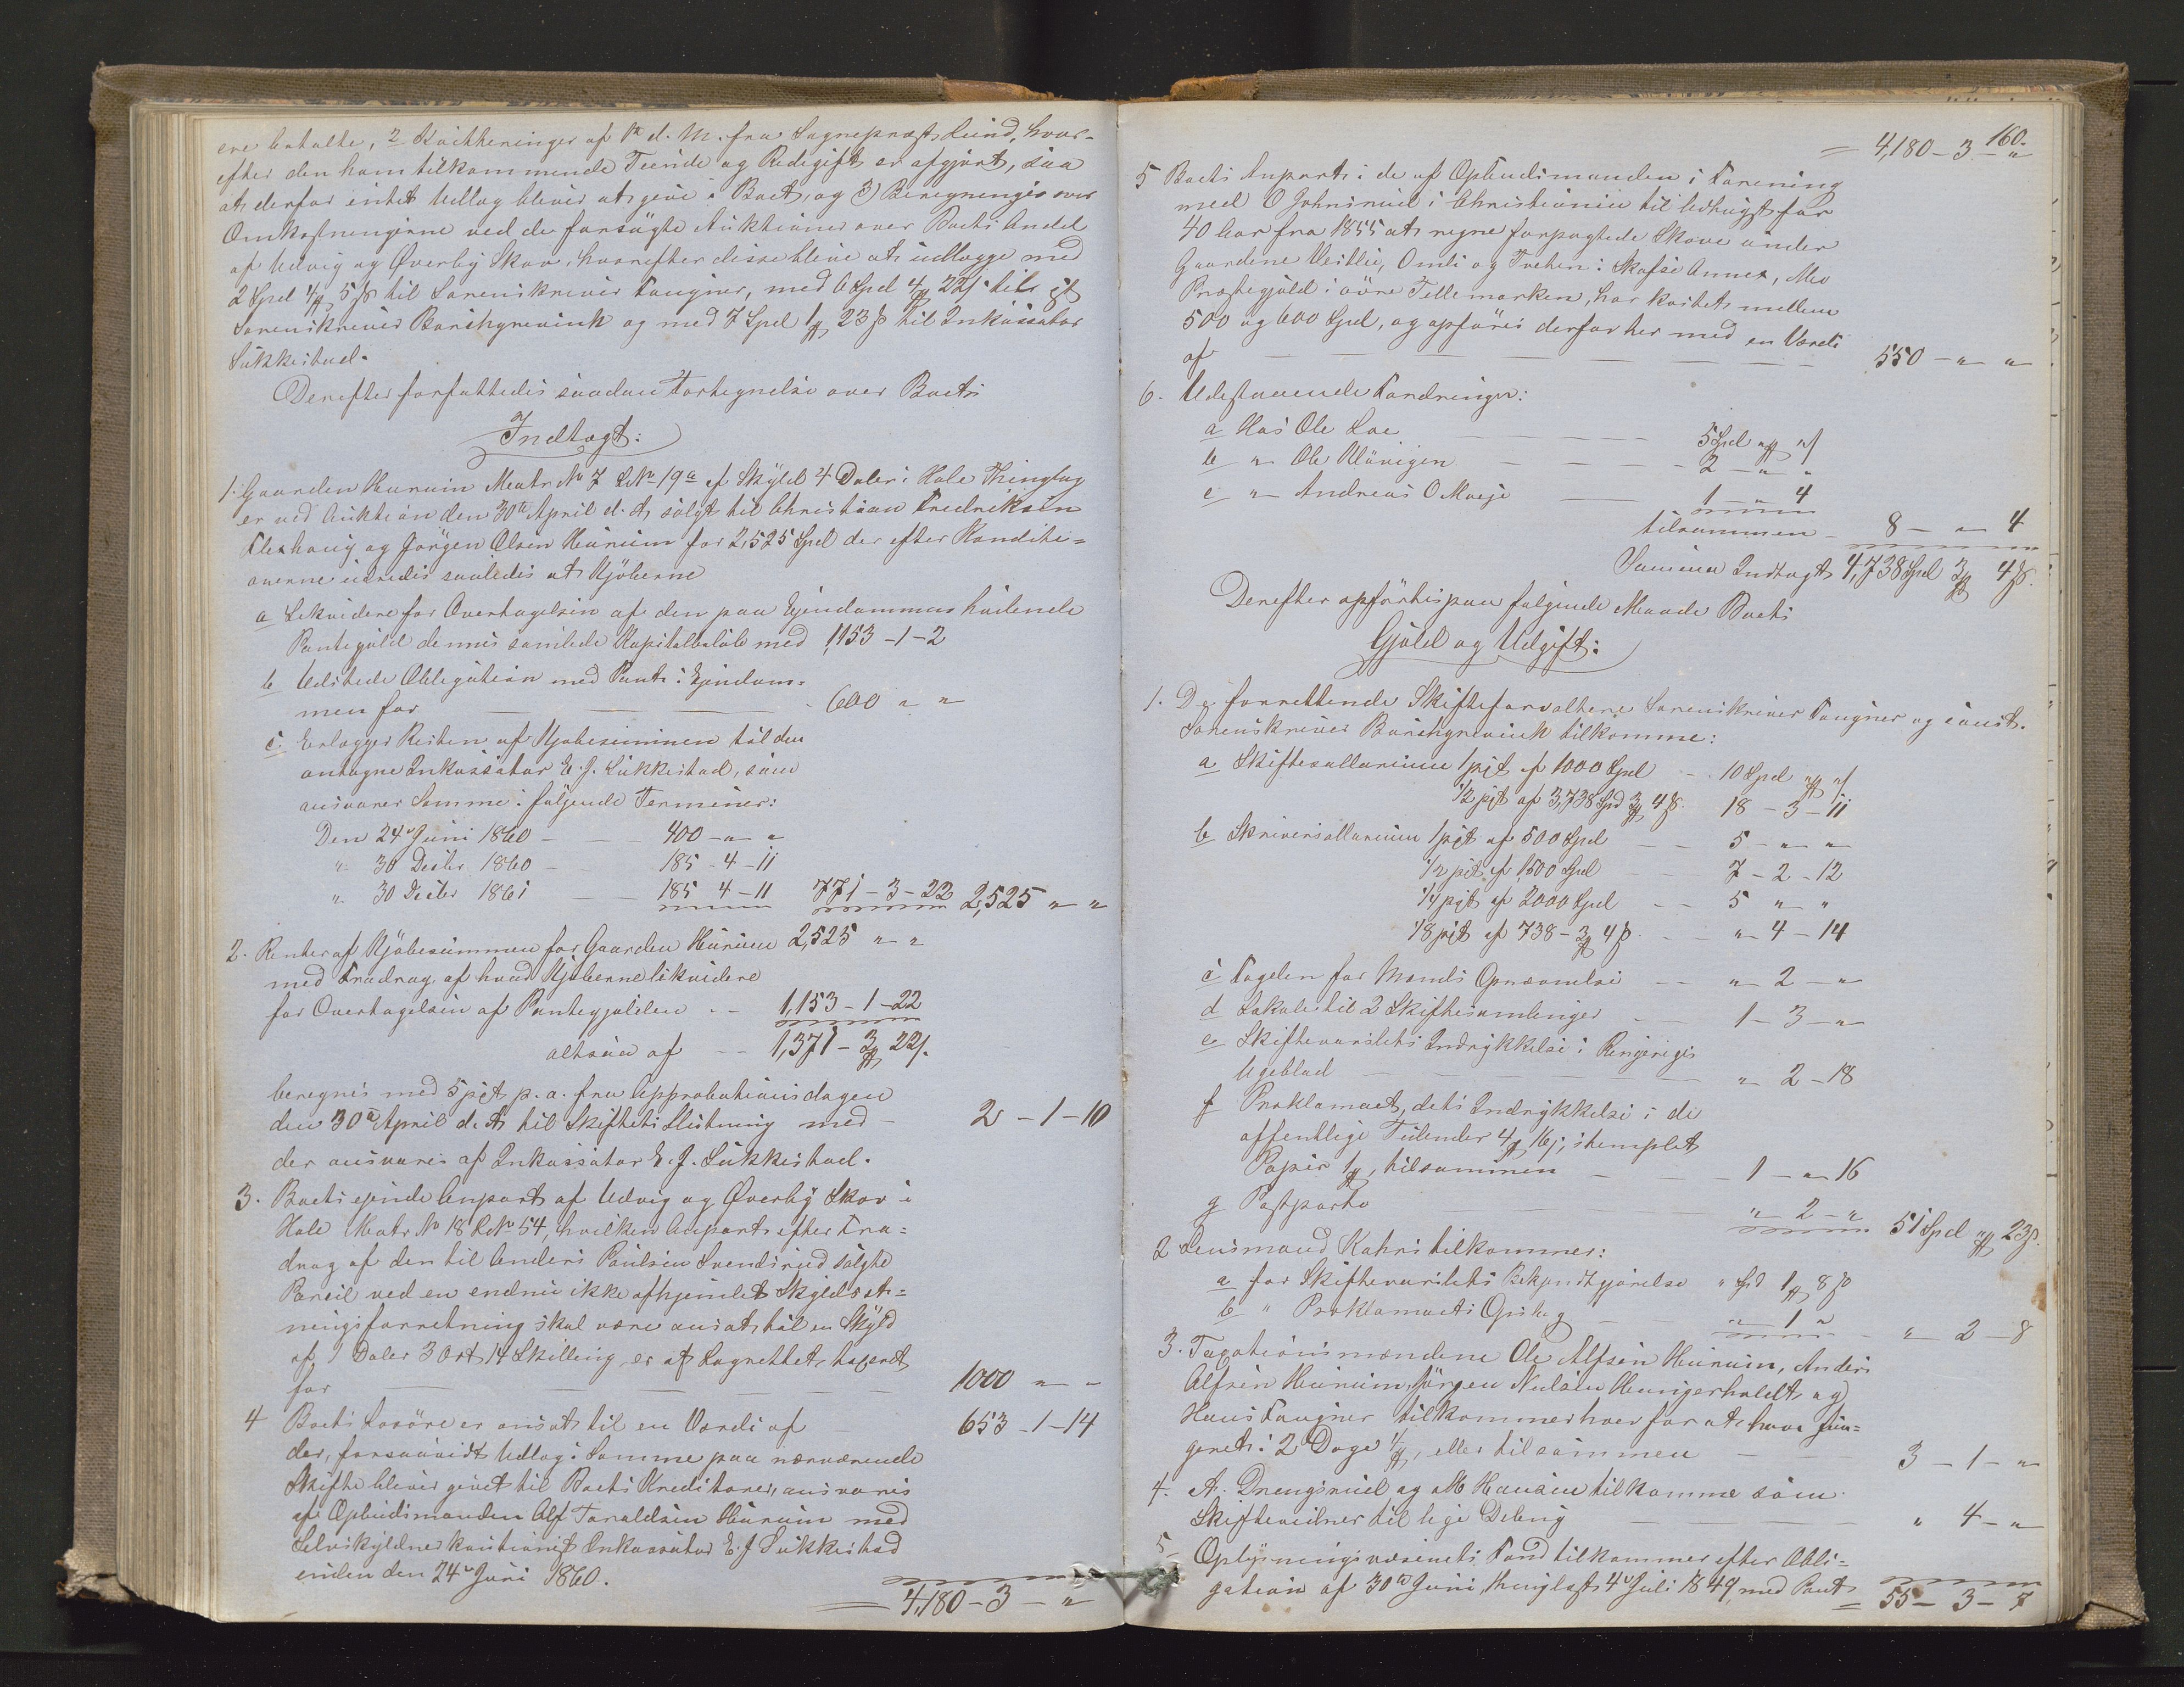 ere betalte, 2 Kvittheringer af 1ste d. M. fra Sognepræst Lund, hvor-
efter den ham tilkommende Tiende og Redegift er afgjort, saa
at derfor intet Udlæg bliver at give i Boet, og 3) Beregninger over
Omkostningerne ved de forsøgte Auktioner over Boets Andel
af Udvig og Øverby Skov, hvorefter disse blive at udlægge med
2 Spd 4 ₰ 5 ß til Sorenskriver Faugner, med 6 Spd 4 ₰ 22 ß til
Sorenskriver Borchgrevink og med 7 Spd 1 ₰ 23 ß til Inkassator
Lukkestad.
Derefter forfattedes saadan Fortegnelse over Boets
Indtægt:
1. Gaarden Hurum Matr No 7 LNo 19a af Skyld 4 Daler i Hole Thinglag
er ved Auktion den 30te April d. A. solgt til Christian Fredriksen
Fleskoug og Jørgen Olsen Hurum for 2,525 Spd der efter Konditi=
onerne udredes saaledes at Kjøberne
a Likvidere for Overtagelsen af den paa Ejendommen hvilende
Pantegjæld dennes samlede Kapitalbeløb med 1,153-1-2
b Udstede Obligation med Pant i Ejendom=
men for — — 600 " "
c Erlægger Resten af Kjøbesummen til den
antagne Inkassator E. J. Lukkestad, som
ansvarer Samme i følgende Terminer:
Den 24de Juni 1860 — — 400 - " "
" 30 Decbr 1860 — 185 - 4 - 11
" 30 Decbr 1861 — — 185 4 - 11 771 - 3 - 22 2,525 " "
2. Renter af Kjøbesummen for Gaarden Hurum 2,525 " "
med Fradrag af hvad Kjøberne likvidere
for Overtagelsen af Pantegjælden — 1,153 - 1 - 22
altsaa af — 1,371 - 3 ₰ 22 ß.
beregnes med 5 pct p. a. fra Approbationsdagen
den 30te April d. A. til Skiftets Slutning med — 2 - 1 - 10
der ansvares af Inkassator E. J. Lukkestad.
3. Boets ejende Anpart af Udvig og Øverby Skov i
Hole Matr No 18 LNo 54, hvilken Anpart efter Fra=
drag af den til Anders Paulsen Svendsrud solgte
Parcel ved en endnu ikke afhjemlet Skyldsæt=
ningsforretning skal være ansat til en Skyld
af 1 Daler 3 Ort 14 Skilling, er af Lagrettet taxeret
for — — — — 1000 " "
4 Boets Løsøre er ansat til en Værdi af — 653 - 1 - 14
der, forsaavidt Udlæg i Samme paa nærværende
Skifte bliver givet til Boets Kreditorer, ansvares
af Opbudsmanden Alf Taraldsen Hurum med
Selvskyldnerkautionist Inkassator E. J. Lukkestad
inden den 24de Juni 1860.
4,180 - 3 - "
160.
4,180 - 3 - "
5 Boets Anpart i de af Opbudsmanden i Forening
med O Johnsrud i Christiania til Udhugst for
40 Aar fra 1855 at regne forpagtede Skove under
Gaardene Vestlie, Omli og Tveten i Skafse Annex, Mo
Præstegjæld i øvre Tellemarken, har kostet mellem
500 og 600 Spd, og opføres derfor her med en Værdi
af — — — — 550 - " "
6. Udestaaende Fordringer:
a Hos Ole Loe — — — 5 Spd " ₰ " ß
b " - Ole Kløvigen — — — 2 - " "
c " - Andreas O Moeje — 1 - " 4
tilsammen — 8 - " 4
Summa Indtægt 4,738 Spd 3 ₰ 4 ß.
Derefter opførtes paa følgende Maade Boets
Gjæld og Udgift:
1. De forrettende Skifteforvaltere Sorenskriver Faugner og const.
Sorenskriver Borchgrevink tilkomme:
a Skiftesallarium 1 pct af 1000 Spd — 10 Spd " ₰ " ß
1/2 pct af 3,738 Spd 3 ₰ 4 ß. 18 - 3 - 11
b Skriversallarium 1 pct af 500 Spd — 5 - " "
1/2 pct af 1,500 Spd — 7 - 2 - 12
1/4 pct af 2000 Spd — 5 " "
1/8 pct af 738 - 3 ₰ 4 ß. — " 4 - 14
c Fogden for Mænds Opnævnelse — " 2 - "
d Lokale til 2 Skiftesamlinger — 1 - 3 - "
e Skiftevarslets Indrykkelse i Ringeriges
Ugeblad — — — " 2 - 18
f Proklamaet, dets Indrykkelse i de
offentlige Tidender 4 ₰ 16 ß, stemplet
Papir 1 ₰, tilsammen — — 1 - " 16
g Postporto — — " 2 - " 51 Spd " ₰ 23 ß.
2 Lensmand Kahrs tilkommer:
a for Skiftevarslets Bekjendtgjørelse " Spd 1 ₰ 8 ß
b " Proklamaets Opslag — " 1 " " 2 - 8
3. Taxationsmændene Ole Alfsen Hurum, Anders
Alfsen Hurum, Jørgen Nielsen Hungerholdt og
Hans Faugner tilkommer hver for at have fun=
geret i 2 Dage 4 ₰, eller tilsammen — — 3 - 1 - "
4. A. Drengsrud og M Hansen tilkomme som
Skiftevidner til lige Deling — — " 4 - "
5 Oplysningsvæsenets Fond tilkommer efter Obli=
gation af 30te Juni, thinglæst 4de Juli 1849, med Pant
55 - 3 - 7